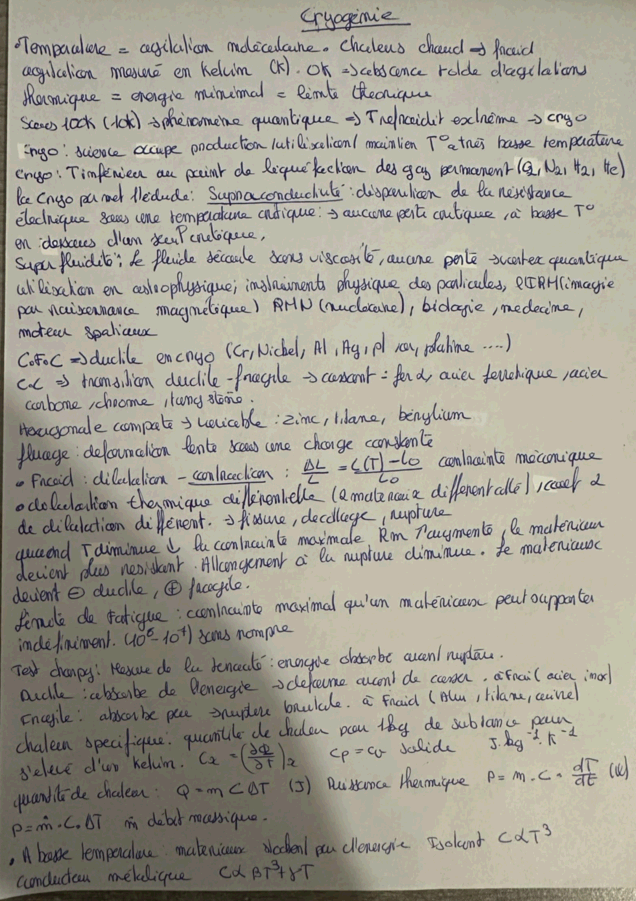 Cryogénie
• Temperature = agitation moléculaire. Chaleurs chaud → froid
agitation mesuré en Kelvin (K). 0K → absence totale d'agitations
thermique = energie minimal = limite theorique
Sous 100K (10K) → phénomène quantique → T refroidit extrême → cryo
Cryo : science occupe production/utilisation/maintien T° à très basse température
cryo : T inférieur au point de liquéfaction des gaz permanent (O2, N2, H2, He)
la Cryo permet l'étude : Supraconductivité : disparition de la résistance
électrique sous une température critique : → aucune perte critique, à basse T°
en dessous d'un seuil critique,
Superfluidité : le fluide s'écoule sans viscosité, aucune perte → vortex quantique
utilisation en astrophysique ; instruments physique des particules, IRM (imagie
par raisonnance magnétique) RMN (nucléaire), biologie, medecine,
moteur spatiaux
C.F.C → ductile en cryo (Cr, Nickel, Al, Ag, pl, or, platine ....)
C.C → transition ductile-fragile → cassant = fer α, acier ferritique, acier
carbone, chrome, tungstène.
Hexagonale compate → variable : zinc, titane, bérylium
fluage : deformation lente sous une charge constante
• Froid : dilatation - contraction : ΔL/L = L(T) - L0 / L0 contrainte mécanique
• dilatation thermique différentielle (2 materiaux different collé), coef α
de dilatation différent. → fissure, decollage, rupture
quand T diminue ↓ la contrainte maximale Rm ↑ augmente, le matériau
devient plus resistant. Allongement à la rupture diminue. Le materiaux
devient ⊖ ductile, ⊕ fragile.
limite de Fatigue : contrainte maximal qu'un matériaux peut supporter
indéfiniment. (10⁶ - 10⁷) sans rompre
Test charpy : Mesure de la tenacité : energie absorbé avant rupture.
Ductile : absorbe de l'energie → deforme avant de casser. à froid (acier inox)
Fragile : absorbe peu → rupture brutale. à Froid (Alu, titane, cuivre)
chaleur specifique : quantité de chaleur pour 1kg de substance pour
s'elevé d'un kelvin. Cx = (∂Q/∂T)x Cp = Cv solide J.kg⁻¹.K⁻¹
quantité de chaleur : Q = m C ΔT (J) Puissance thermique P = m . C . dT/dt (W)
P = ṁ . C . ΔT ṁ débit massique.
• A basse temperature materiaux stockent peu d'energie Isolant C α T³
conducteur métalique C α βT³ + γT